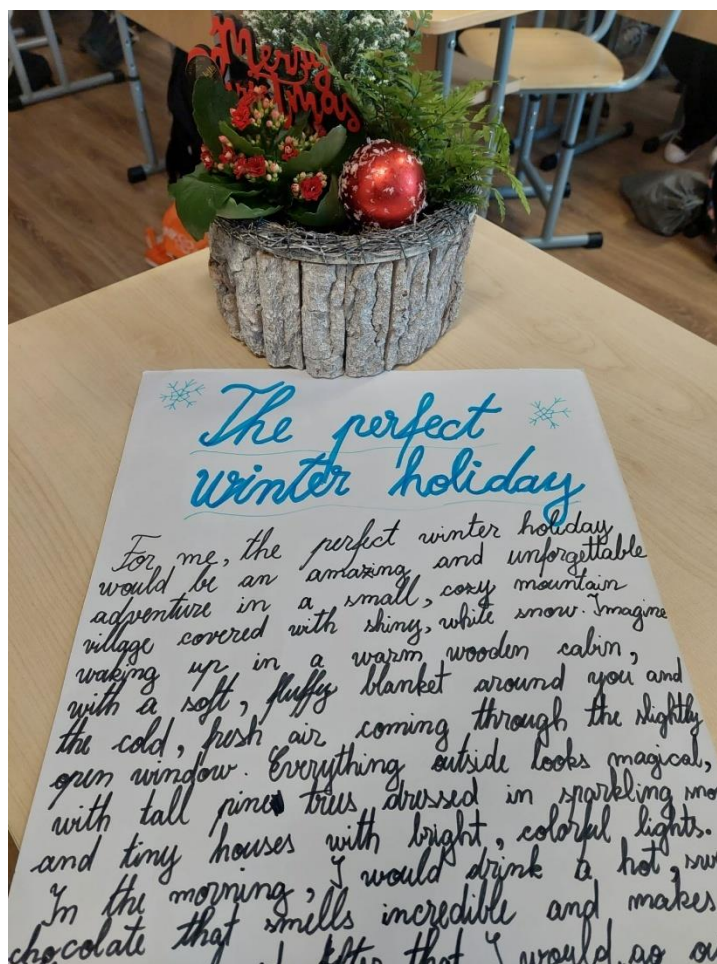 Merry
The perfect
winter holiday
For me, the perfect winter holiday
would be an amazing and unforgettable
adventure in a small, cozy mountain
village covered with shiny, white snow. Imagine
waking up in a warm wooden cabin,
with a soft, fluffy blanket around you and
the cold, fresh air coming through the slightly
open window. Everything outside looks magical,
with tall pine trees dressed in sparkling
and tiny houses with bright, colorful lights.
In the morning, I would drink a hot,
chocolate that smells incredible and makes
After that I would go